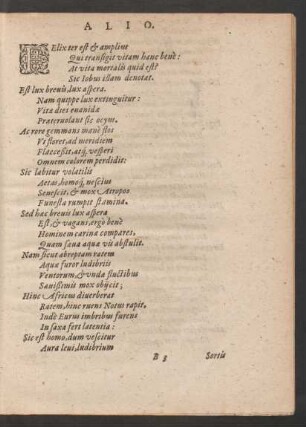 ALIO.
FElix ter est & amplius
Qui transigit vitam hanc benè:
At vita mortalis quid est?
Sic Iobus illam denotat.
Est lux breuis, lux aspera.
Nam quippe lux extinguitur:
Vitæ dies euanidæ
Prateruolant sic ocyus.
Ac rore gemmans mane flos
Vt floret, ad meridiem
Flaccescit, atq́; vesperi
Omnem colorem perdidit:
Sic labitur volatilis
Aetas, homoq́; nescius
Senescit, & mox Atropos
Funesta rumpit stamina.
Sed hæc breuis lux aspera
Est, & vagans, ergo benè
Hominem carinæ compares,
Quam sæua aqua vis abstulit.
Nam sicut abreptam ratem
Aqua furor ludibriis
Ventorum, & vnda fluctibus
Sæuissimis mox obijcit;
Hinc Africus diuerberat
Ratem, hinc ruens Notus rapit.
Inde Eurus imbribus furens
In saxa fert latentia:
Sic est homo, dum vescitur
Aura leui, ludibrium
B 3 Sortis